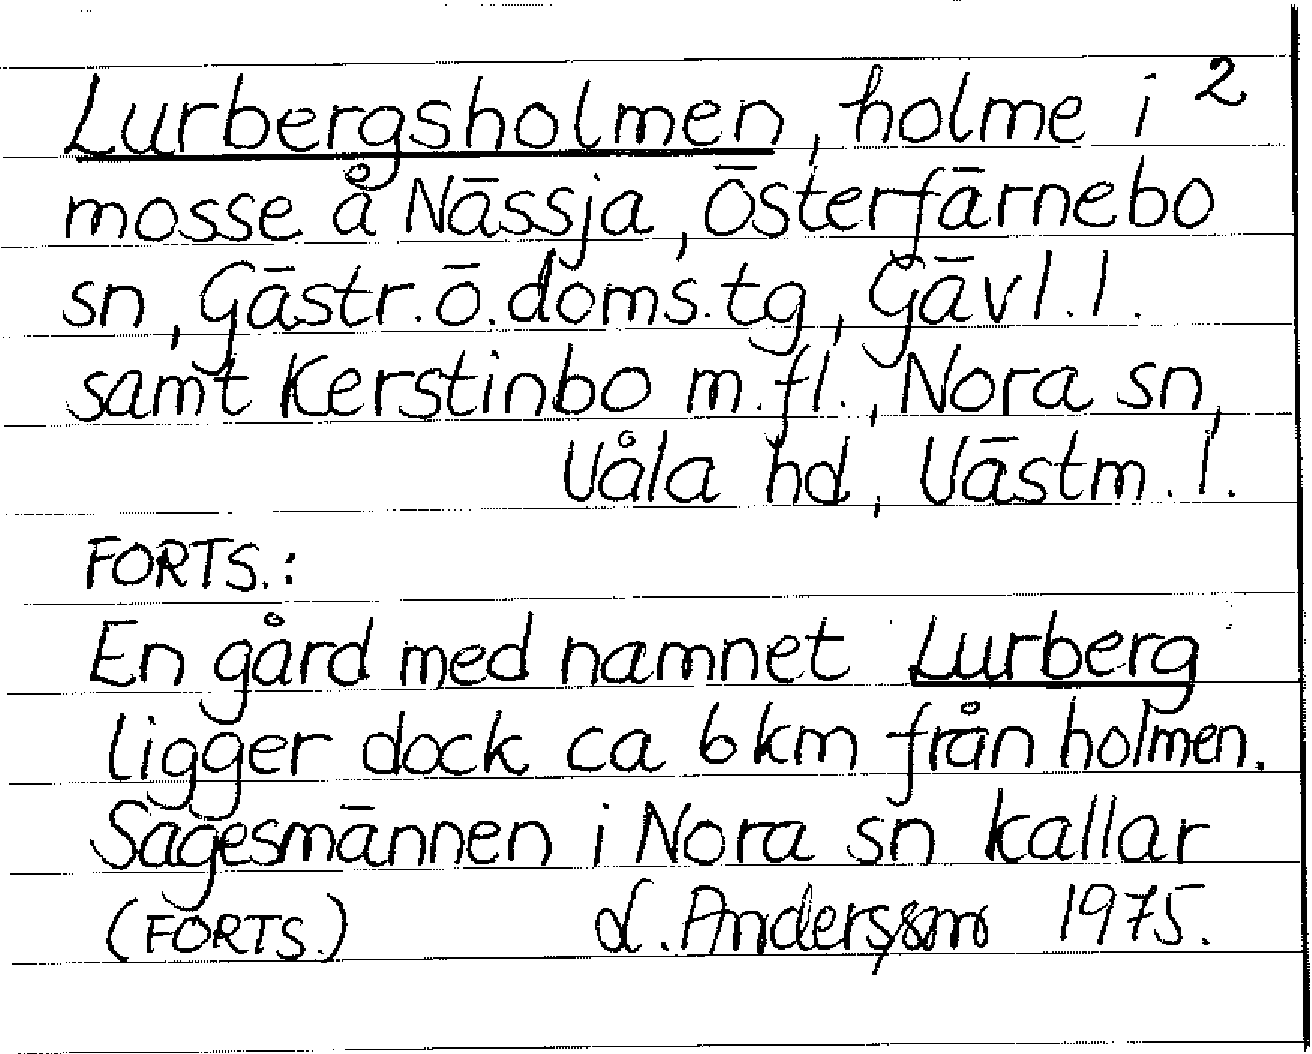 Lurbergsholmen, holme i 2
mosse å Nässja, Österfärnebo
sn, Gästr. ö. doms. tg, Gävl. l.
samt Kerstinbo m. fl., Nora sn,
Våla hd, Västm. l.
FORTS.:
En gård med namnet Lurberg
ligger dock ca 6 km från holmen.
Sagesmännen i Nora sn kallar
(FORTS.) L. Andersson 1975.